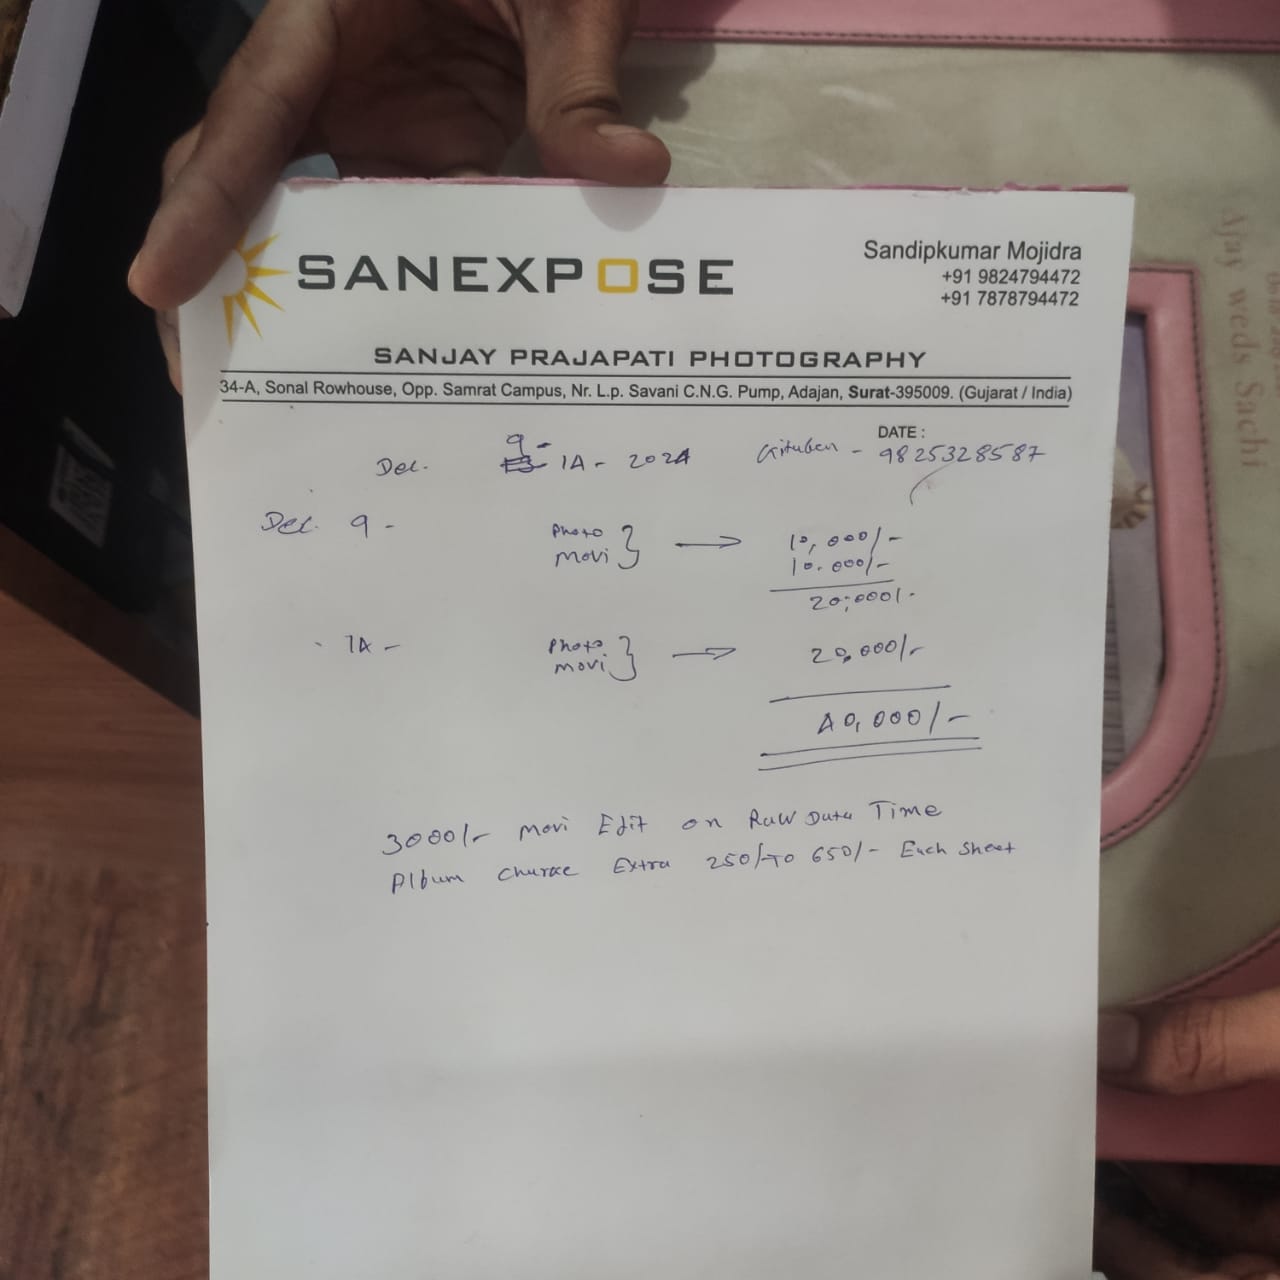 SANEXPOSE
Sandipkumar Mojidra
+91 9824794472
+91 7878794472
SANJAY PRAJAPATI PHOTOGRAPHY
34-A, Sonal Rowhouse, Opp. Samrat Campus, Nr. L.p. Savani C.N.G. Pump, Adajan, Surat-395009. (Gujarat / India)
DATE :
Dec. 9- 14 - 2024 Gituben - 9825328587
Dec. 9 - Photo 10,000/-
Movi 10.000/-
20,000/-
14 - Photo
Movi 20,000/-
40,000/-
3000/- Movi Edit on Raw Data Time
Album Charge Extra 250/- To 650/- Each Sheet
Ajay weds Sachi